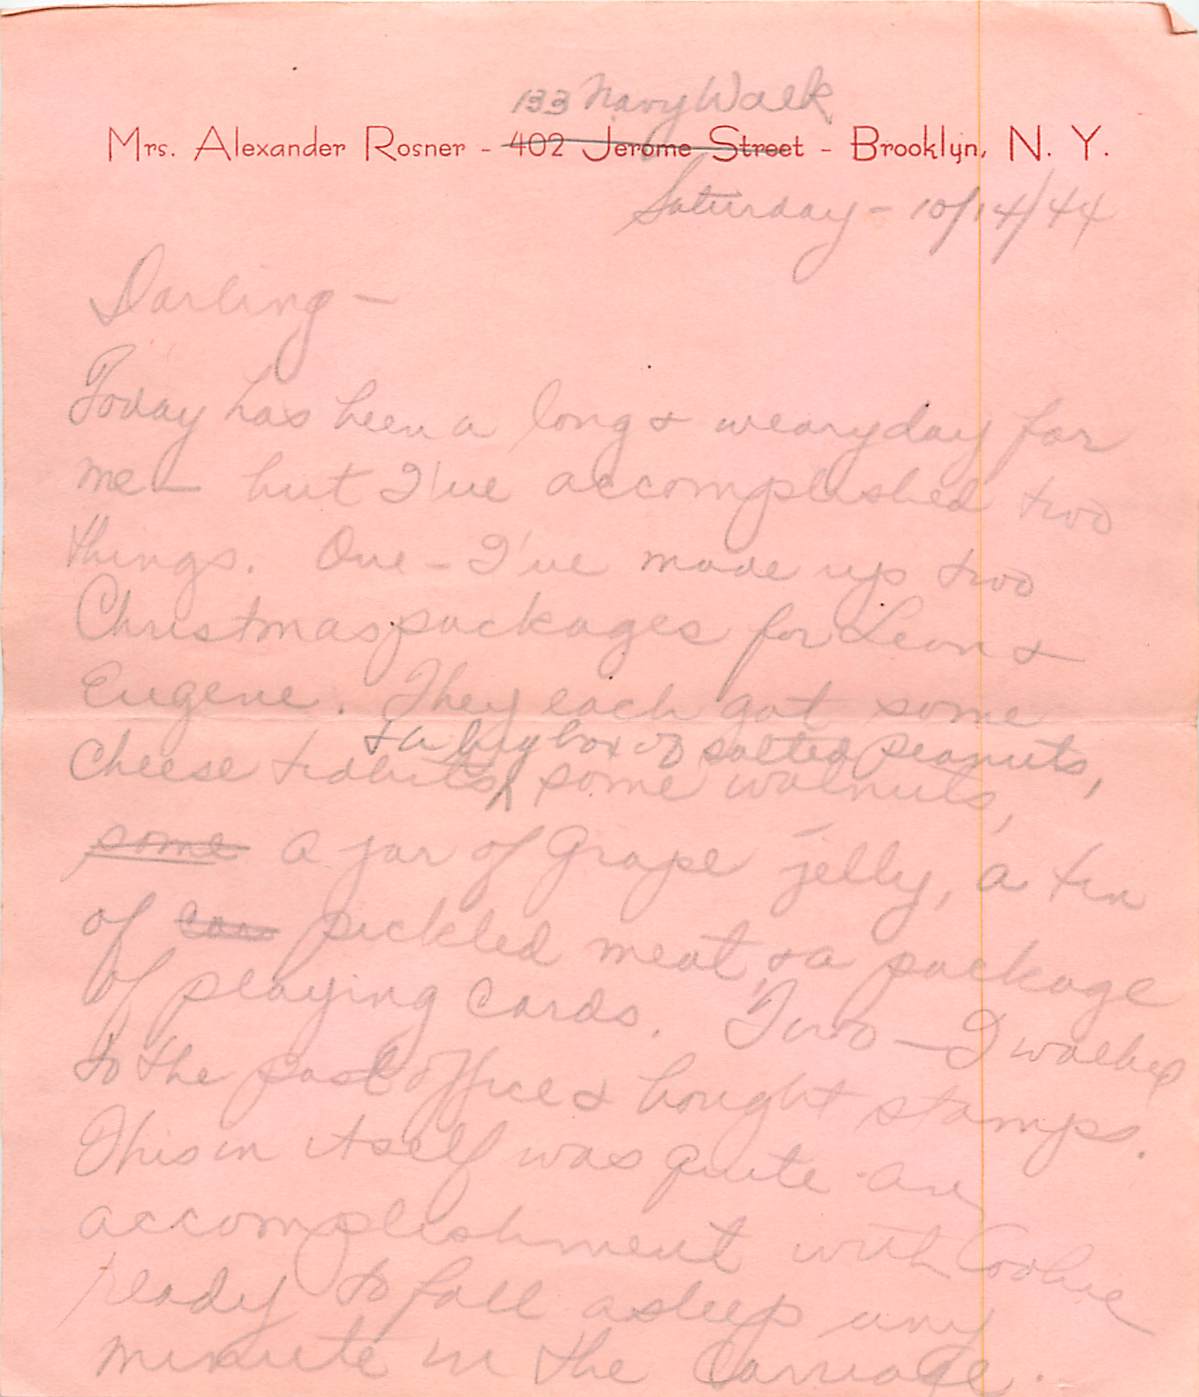 133 Navy Walk
Mrs. Alexander Rosner - 402 Jerome Street - Brooklyn, N. Y.
Saturday - 10/14/44
Darling -
Today has been a long & weary day for
me - but I've accomplished two
things. One - I've made up two
Christmas packages for Leon &
Eugene. They each got some
& a big box of salted peanuts,
cheese tidbits, some walnuts,
some a jar of grape jelly, a tin
of can pickled meat, & a package
of playing cards. Two - I walked
to the post office & bought stamps.
This in itself was quite an
accomplishment with Cookie
ready to fall asleep any
minute in the carriage.